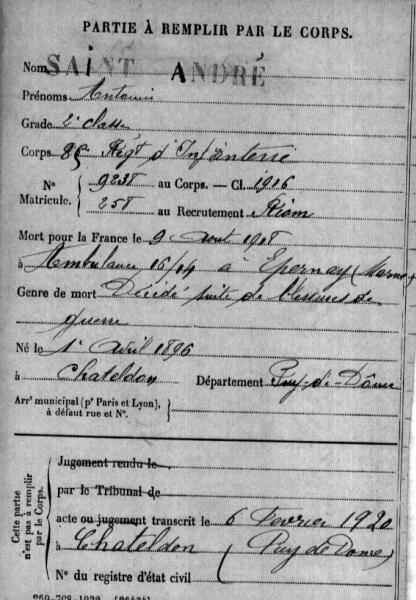 PARTIE À REMPLIR PAR LE CORPS.
Nom SAINT ANDRÉ
Prénoms Antoine
Grade 2e classe
Corps 86e Regt d'Infanterie
N° Matricule. { 9238 au Corps. — Cl. 1916
258 au Recrutement Riom
Mort pour la France le 9 Aout 1918
à Ambulance 16/14 à Epernay (Marne)
Genre de mort Décédé suite de blessures de
guerre
Né le 1er Avril 1896
à Chateldon Département Puy-de-Dôme
Arrt municipal (pr Paris et Lyon), à défaut rue et N°. }
Cette partie n'est pas à remplir par le Corps. {
Jugement rendu le
par le Tribunal de
acte ou jugement transcrit le 6 Fevrier 1920
à Chateldon (Puy de Dome)
N° du registre d'état civil